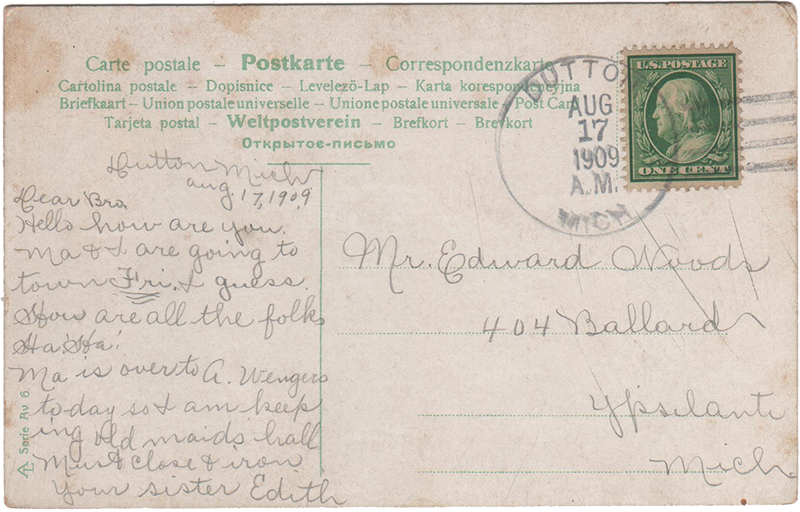 Carte postale – Postkarte – Correspondenzkarte
Cartolina postale – Dopisnice – Levelező-Lap – Karta korespondencyjna
Briefkaart – Union postale universelle – Unione postale universale – Post Card
Tarjeta postal – Weltpostverein – Brefkort – Brevkort
Открытое-письмо
DUTTON
AUG
17
1909
A.M.
MICH
U.S. POSTAGE
ONE CENT
Dutton Mich
Aug 17, 1909
Dear Bro
Hello how are you.
Ma & I are going to
town Fri. I guess.
How are all the folks
Ha! Ha!
Ma is over to A. Wengers
today so I am keep
ing old maids hall
Must close & iron
Your sister Edith
Mr. Edward Woods
404 Ballard
Ypsilanti
Mich
Serie Av 6.